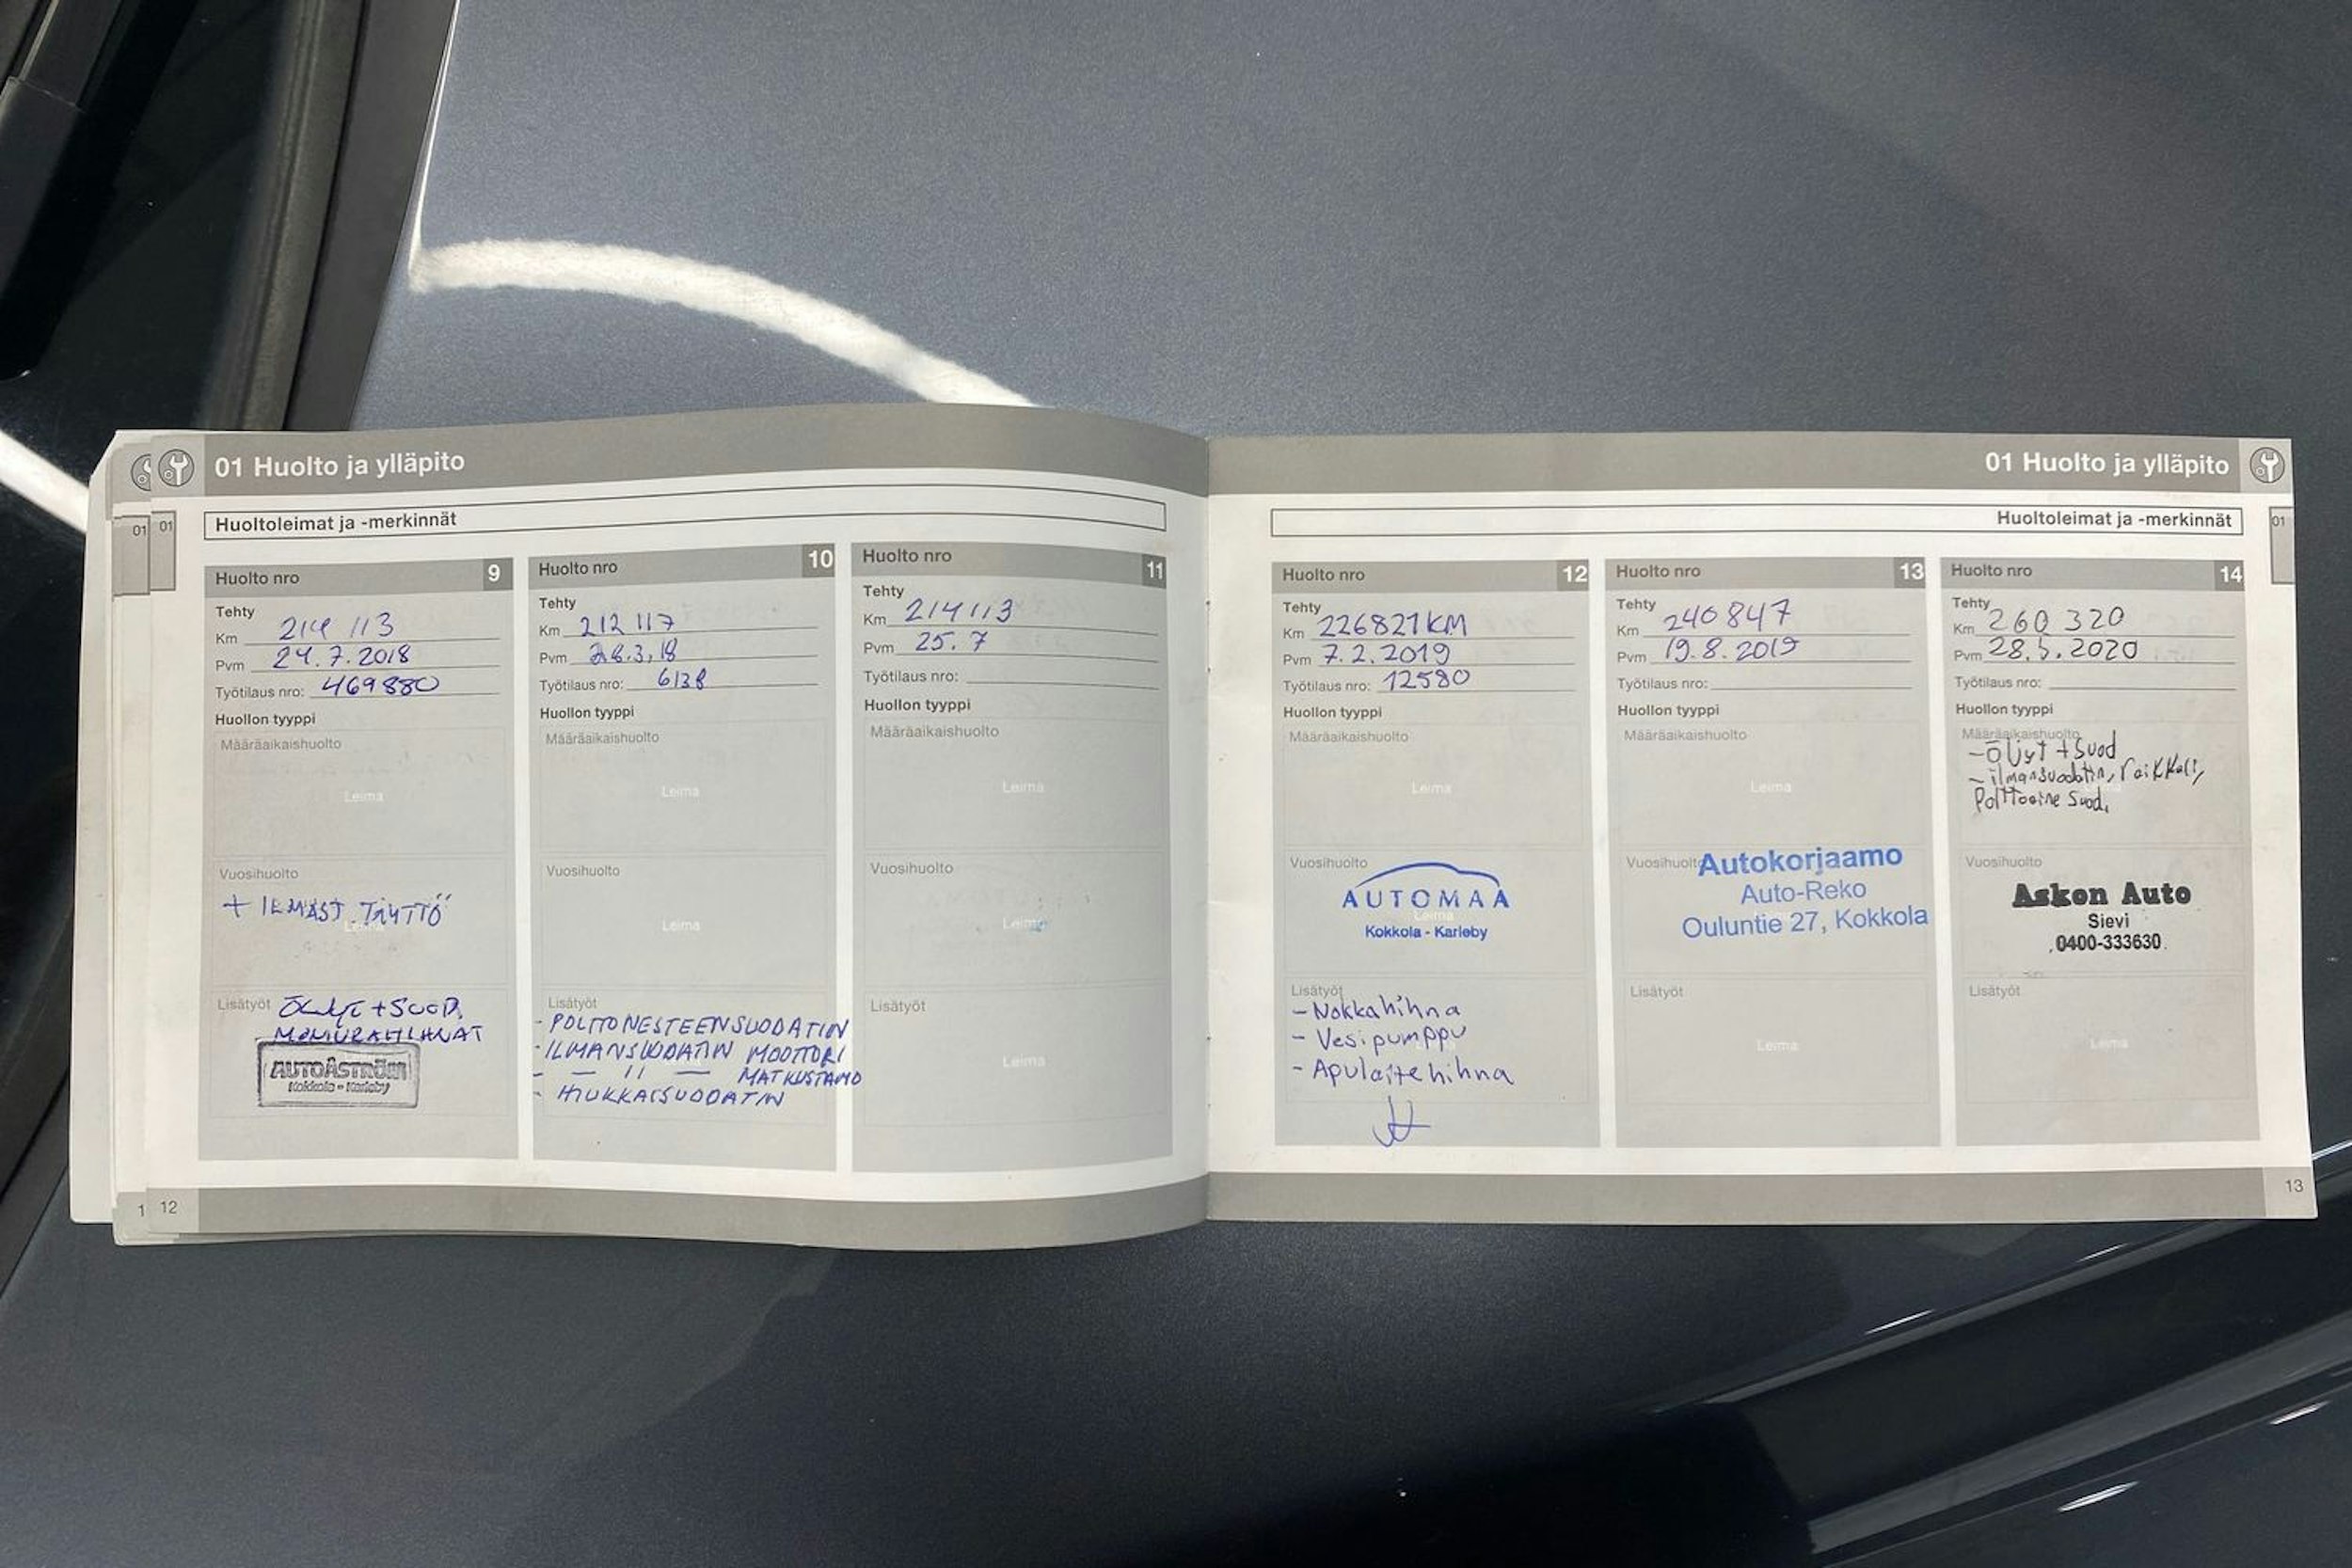 01 Huolto ja ylläpito
01 01
Huoltoleimat ja -merkinnät
Huolto nro 9
Tehty
Km 214 113
Pvm 24.7.2018
Työtilaus nro: 469880
Huollon tyyppi
Määräaikaishuolto
Leima
Vuosihuolto
+ ILMAST. TÄYTTÖ
Leima
Lisätyöt ÖLJYT + SUOD.
MONIURAHIHNAT
AUTOÅSTRÖM
Kokkola - Karleby
Huolto nro 10
Tehty
Km 212 117
Pvm 28.3.18
Työtilaus nro: 6138
Huollon tyyppi
Määräaikaishuolto
Leima
Vuosihuolto
Leima
Lisätyöt
- POLTTONESTEENSUODATIN
- ILMANSUODATIN MOOTTORI
- — 11 — MATKUSTAMO
- HIUKKAISUODATIN
Huolto nro 11
Tehty
Km 214113
Pvm 25.7
Työtilaus nro:
Huollon tyyppi
Määräaikaishuolto
Leima
Vuosihuolto
Leima
Lisätyöt
Leima
1 12
01 Huolto ja ylläpito
01
Huoltoleimat ja -merkinnät
Huolto nro 12
Tehty
Km 226821KM
Pvm 7.2.2019
Työtilaus nro: 12580
Huollon tyyppi
Määräaikaishuolto
Leima
Vuosihuolto
AUTOMAA
Leima
Kokkola - Karleby
Lisätyöt
- Nokkahihna
- Vesipumppu
- Apulaitehihna
Huolto nro 13
Tehty
Km 240847
Pvm 19.8.2019
Työtilaus nro:
Huollon tyyppi
Määräaikaishuolto
Leima
Vuosihuolto
Autokorjaamo
Auto-Reko
Ouluntie 27, Kokkola
Lisätyöt
Leima
Huolto nro 14
Tehty
Km 260 320
Pvm 28.5.2020
Työtilaus nro:
Huollon tyyppi
Määräaikaishuolto
- Öljyt + Suod
- ilmansuodatin, raikkali,
Polttoaine Suod.
Vuosihuolto
Askon Auto
Sievi
0400-333630
Lisätyöt
Leima
13